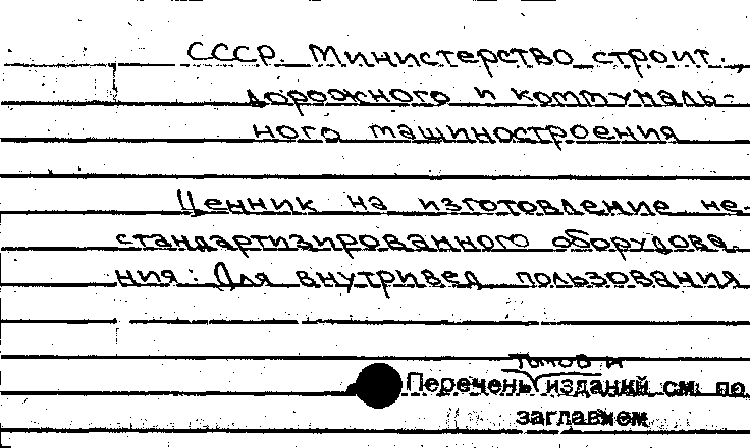 СССР. Министерство строит.,
дорожного и коммуналь-
ного машиностроения
Ценник на изготовление не-
стандартизированного оборудова-
ния: Для внутривед пользования
томов и
Перечень изданий см. по
заглавием